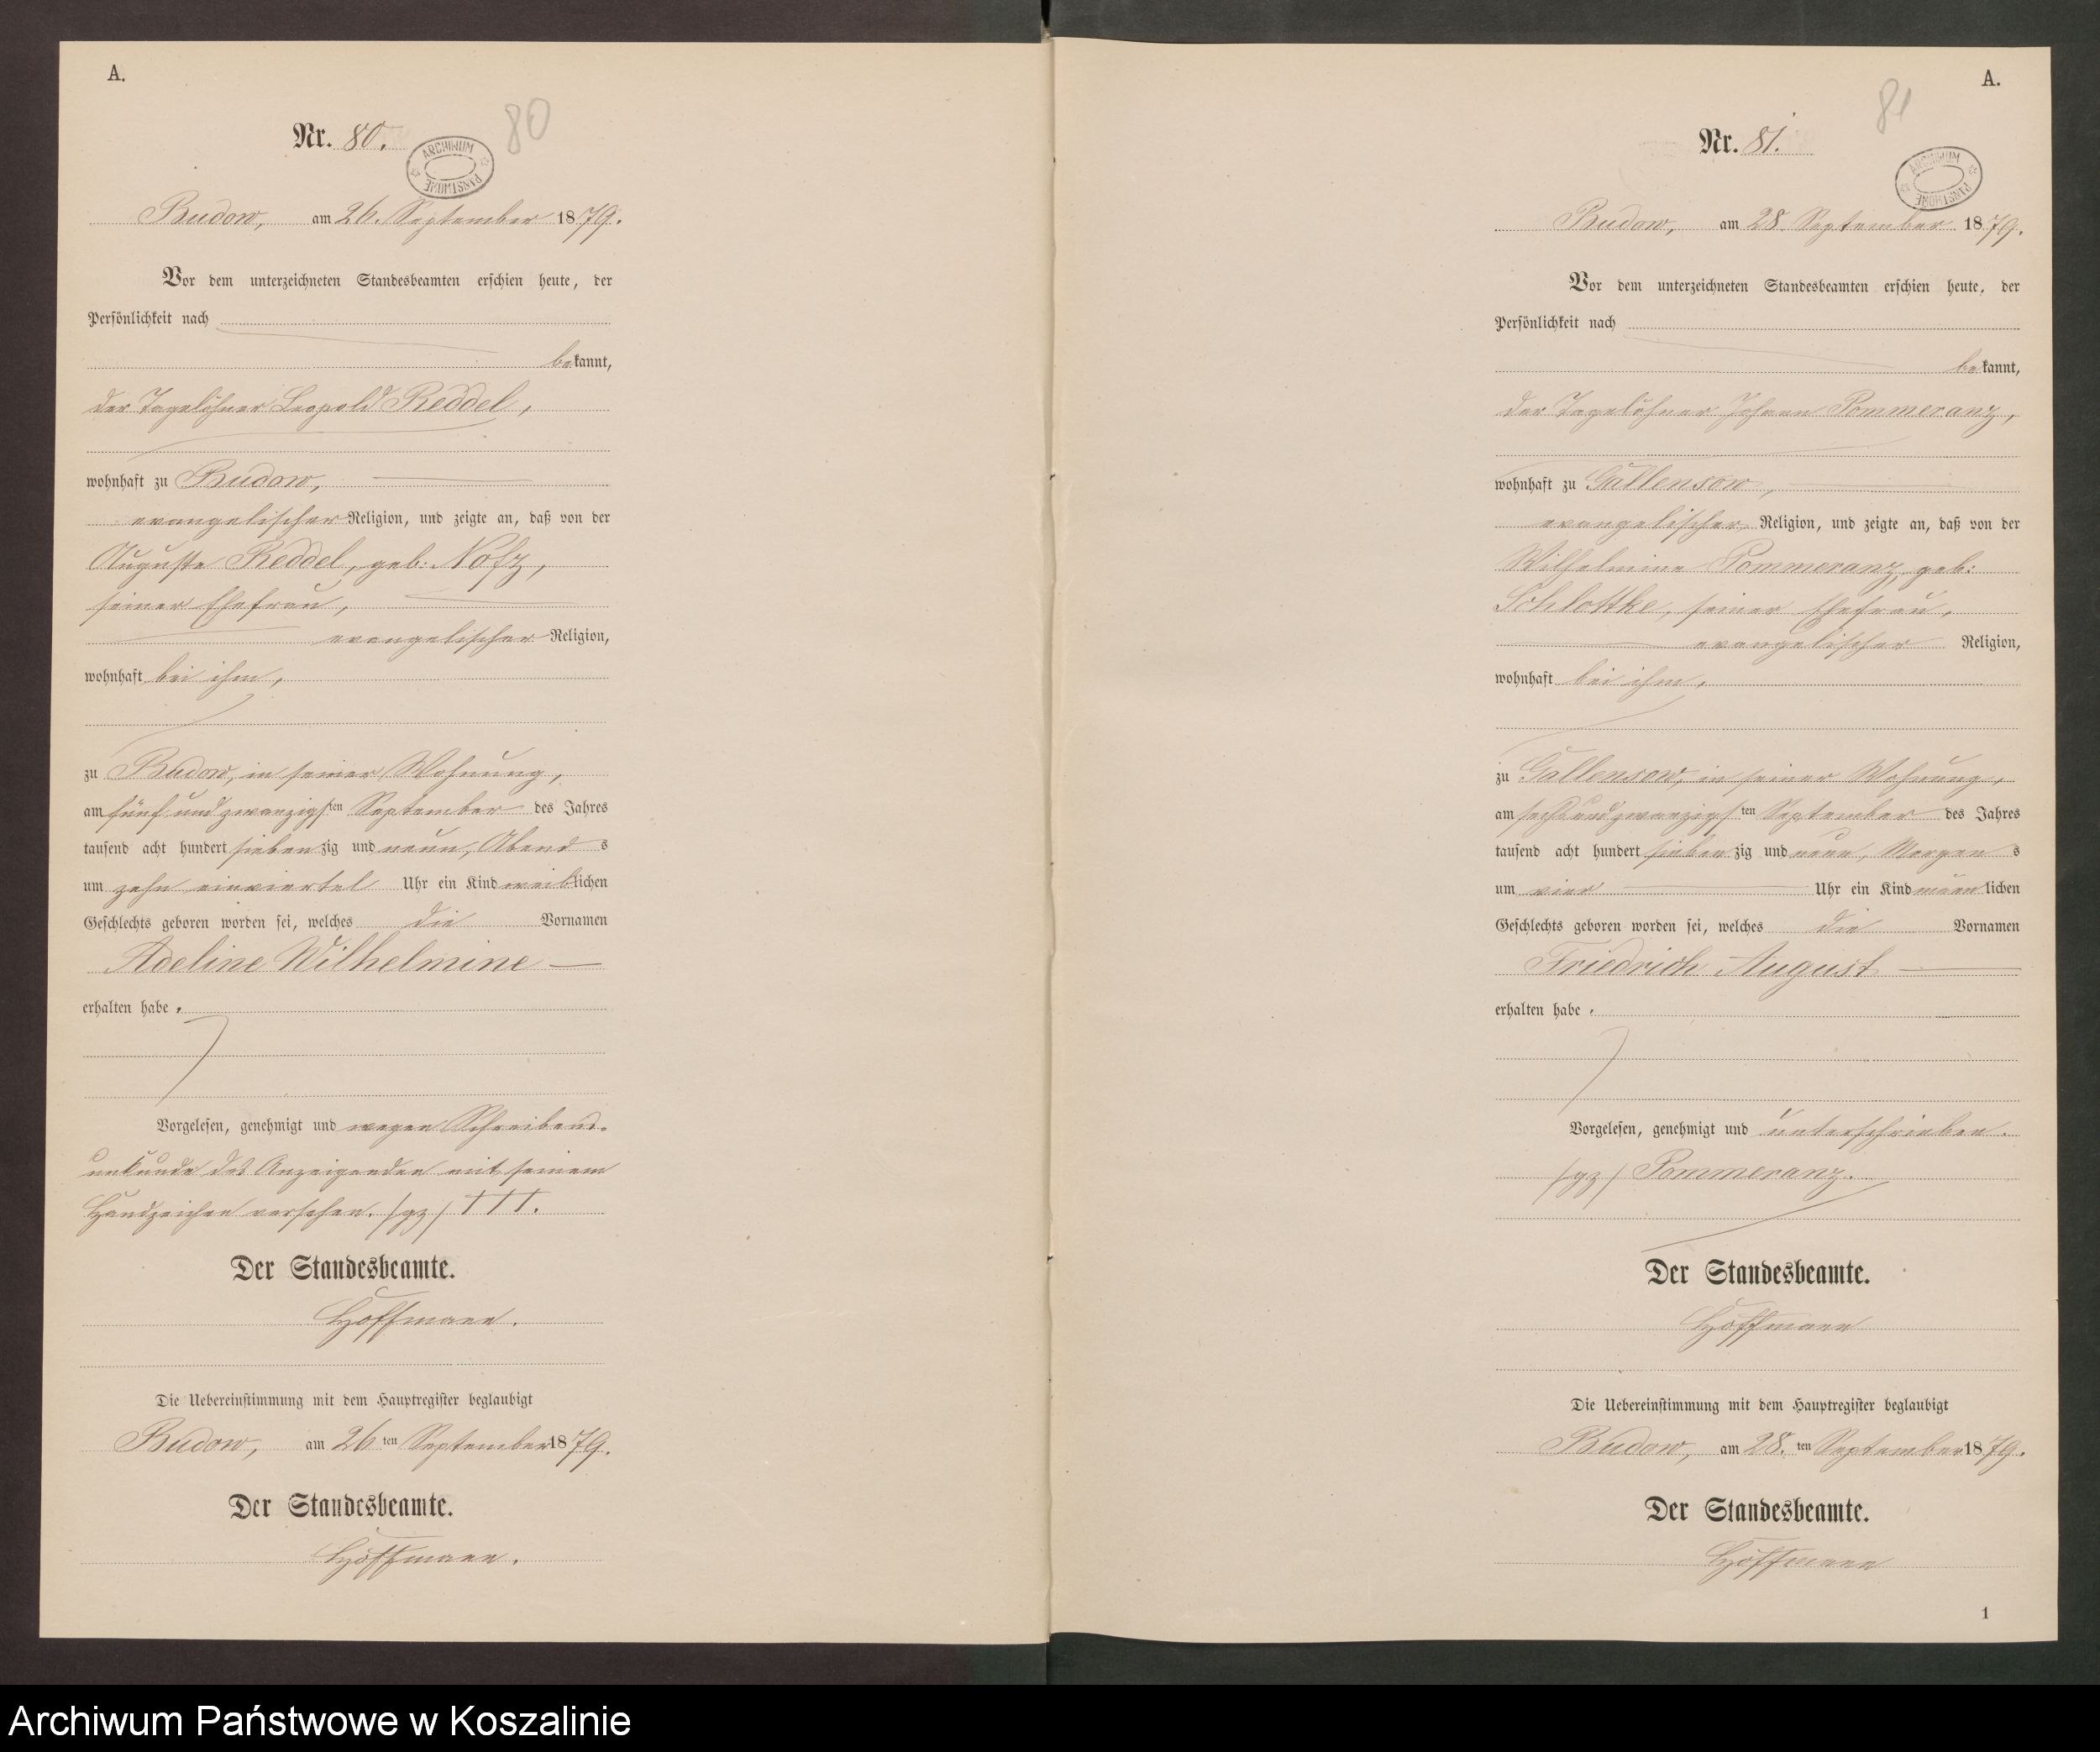 A.
Nr. 80.
80
ARCHIWUM PAŃSTWOWE
Budow, am 26. September 1879.
Vor dem unterzeichneten Standesbeamten erschien heute, der
Persönlichkeit nach
bekannt,
der Tagelöhner Leopold Reddel,
wohnhaft zu Budow,
evangelischer Religion, und zeigte an, daß von der
Auguste Reddel, geb: Notz,
seiner Ehefrau,
evangelischer Religion,
wohnhaft bei ihm,
zu Budow, in seiner Wohnung,
am fünf und zwanzigsten September des Jahres
tausend acht hundert siebenzig und neun, Abends
um zehn einviertel Uhr ein Kind weiblichen
Geschlechts geboren worden sei, welches die Vornamen
Adeline Wilhelmine
erhalten habe.
Vorgelesen, genehmigt und wegen Schreibens-
unkunde des Anzeigenden mit seinem
Handzeichen versehen. /gz/ †††.
Der Standesbeamte.
Hoffmann.
Die Uebereinstimmung mit dem Hauptregister beglaubigt
Budow, am 26ten September 1879.
Der Standesbeamte.
Hoffmann.
A.
81
Nr. 81.
ARCHIWUM PAŃSTWOWE
Budow, am 28. September 1879.
Vor dem unterzeichneten Standesbeamten erschien heute, der
Persönlichkeit nach
bekannt,
der Tagelöhner Johann Pommeranz,
wohnhaft zu Gallensow,
evangelischer Religion, und zeigte an, daß von der
Wilhelmine Pommeranz, geb:
Schlottke, seiner Ehefrau,
evangelischer Religion,
wohnhaft bei ihm,
zu Gallensow, in seiner Wohnung,
am sechsundzwanzigsten September des Jahres
tausend acht hundert siebenzig und neun, Morgens
um vier Uhr ein Kind männlichen
Geschlechts geboren worden sei, welches die Vornamen
Friedrich August
erhalten habe.
Vorgelesen, genehmigt und unterschrieben.
/gz/ Pommeranz.
Der Standesbeamte.
Hoffmann
Die Uebereinstimmung mit dem Hauptregister beglaubigt
Budow, am 28.ten September 1879.
Der Standesbeamte.
Hoffmann
1
Archiwum Państwowe w Koszalinie